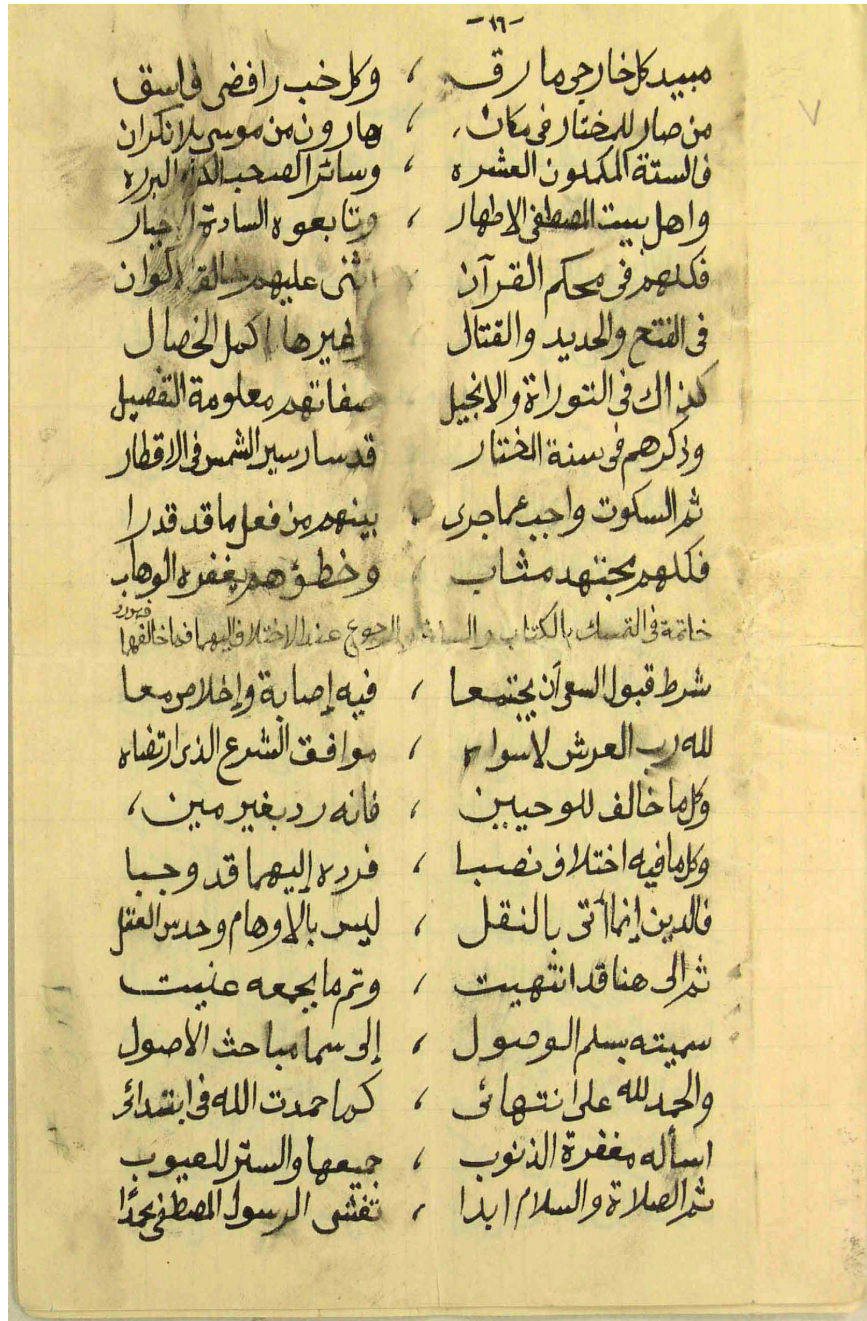 -١٦-
مبيد كل خارجي مارق ، وكل خب رافضي فاسق
من صار للمختار في مكان ، هارون من موسى بلا نكران
فالستة المكملون العشره ، وسائر الصحب الكرام البرره
واهل بيت المصطفى الاطهار ، وتابعوه السادة الاخيار
فكلهم في محكم القرآن اثنى عليهم خالق الاكوان
في الفتح والحديد والقتال وغيرها اكمل الخصال
كذاك في التوراة والانجيل صفاتهم معلومة التفصيل
وذكرهم في سنة المختار قد سار سير الشمس في الاقطار
ثم السكوت واجب عما جرى ، بينهم من فعل ما قد قدرا
فكلهم مجتهد مثاب ، وخطؤهم يغفره الوهاب
خاتمة في التمسك بالكتاب والسنة والرجوع عند الاختلاف اليهما فما خالفهما فهو رد
شرط قبول السعي أن يجتمعا ، فيه إصابة وإخلاص معا
لله رب العرش لا سواه ، موافق الشرع الذي ارتضاه
وكل ما خالف للوحيين ، فانه رد بغير مين ،
وكل ما فيه اختلاف نصبا ، فرده إليهما قد وجبا
فالدين إنما أتى بالنقل ، ليس بالاوهام وحدس العقل
ثم الى هنا قد انتهيت ، وتم ما بجمعه عنيت
سميته بسلم الوصول ، إلى سما مباحث الأصول
والحمد لله على انتهائي ، كما حمدت الله في ابتدائي
اسأله مغفرة الذنوب ، جميعها والستر للعيوب
ثم الصلاة والسلام ابدا ، تغشى الرسول المصطفى محمدا